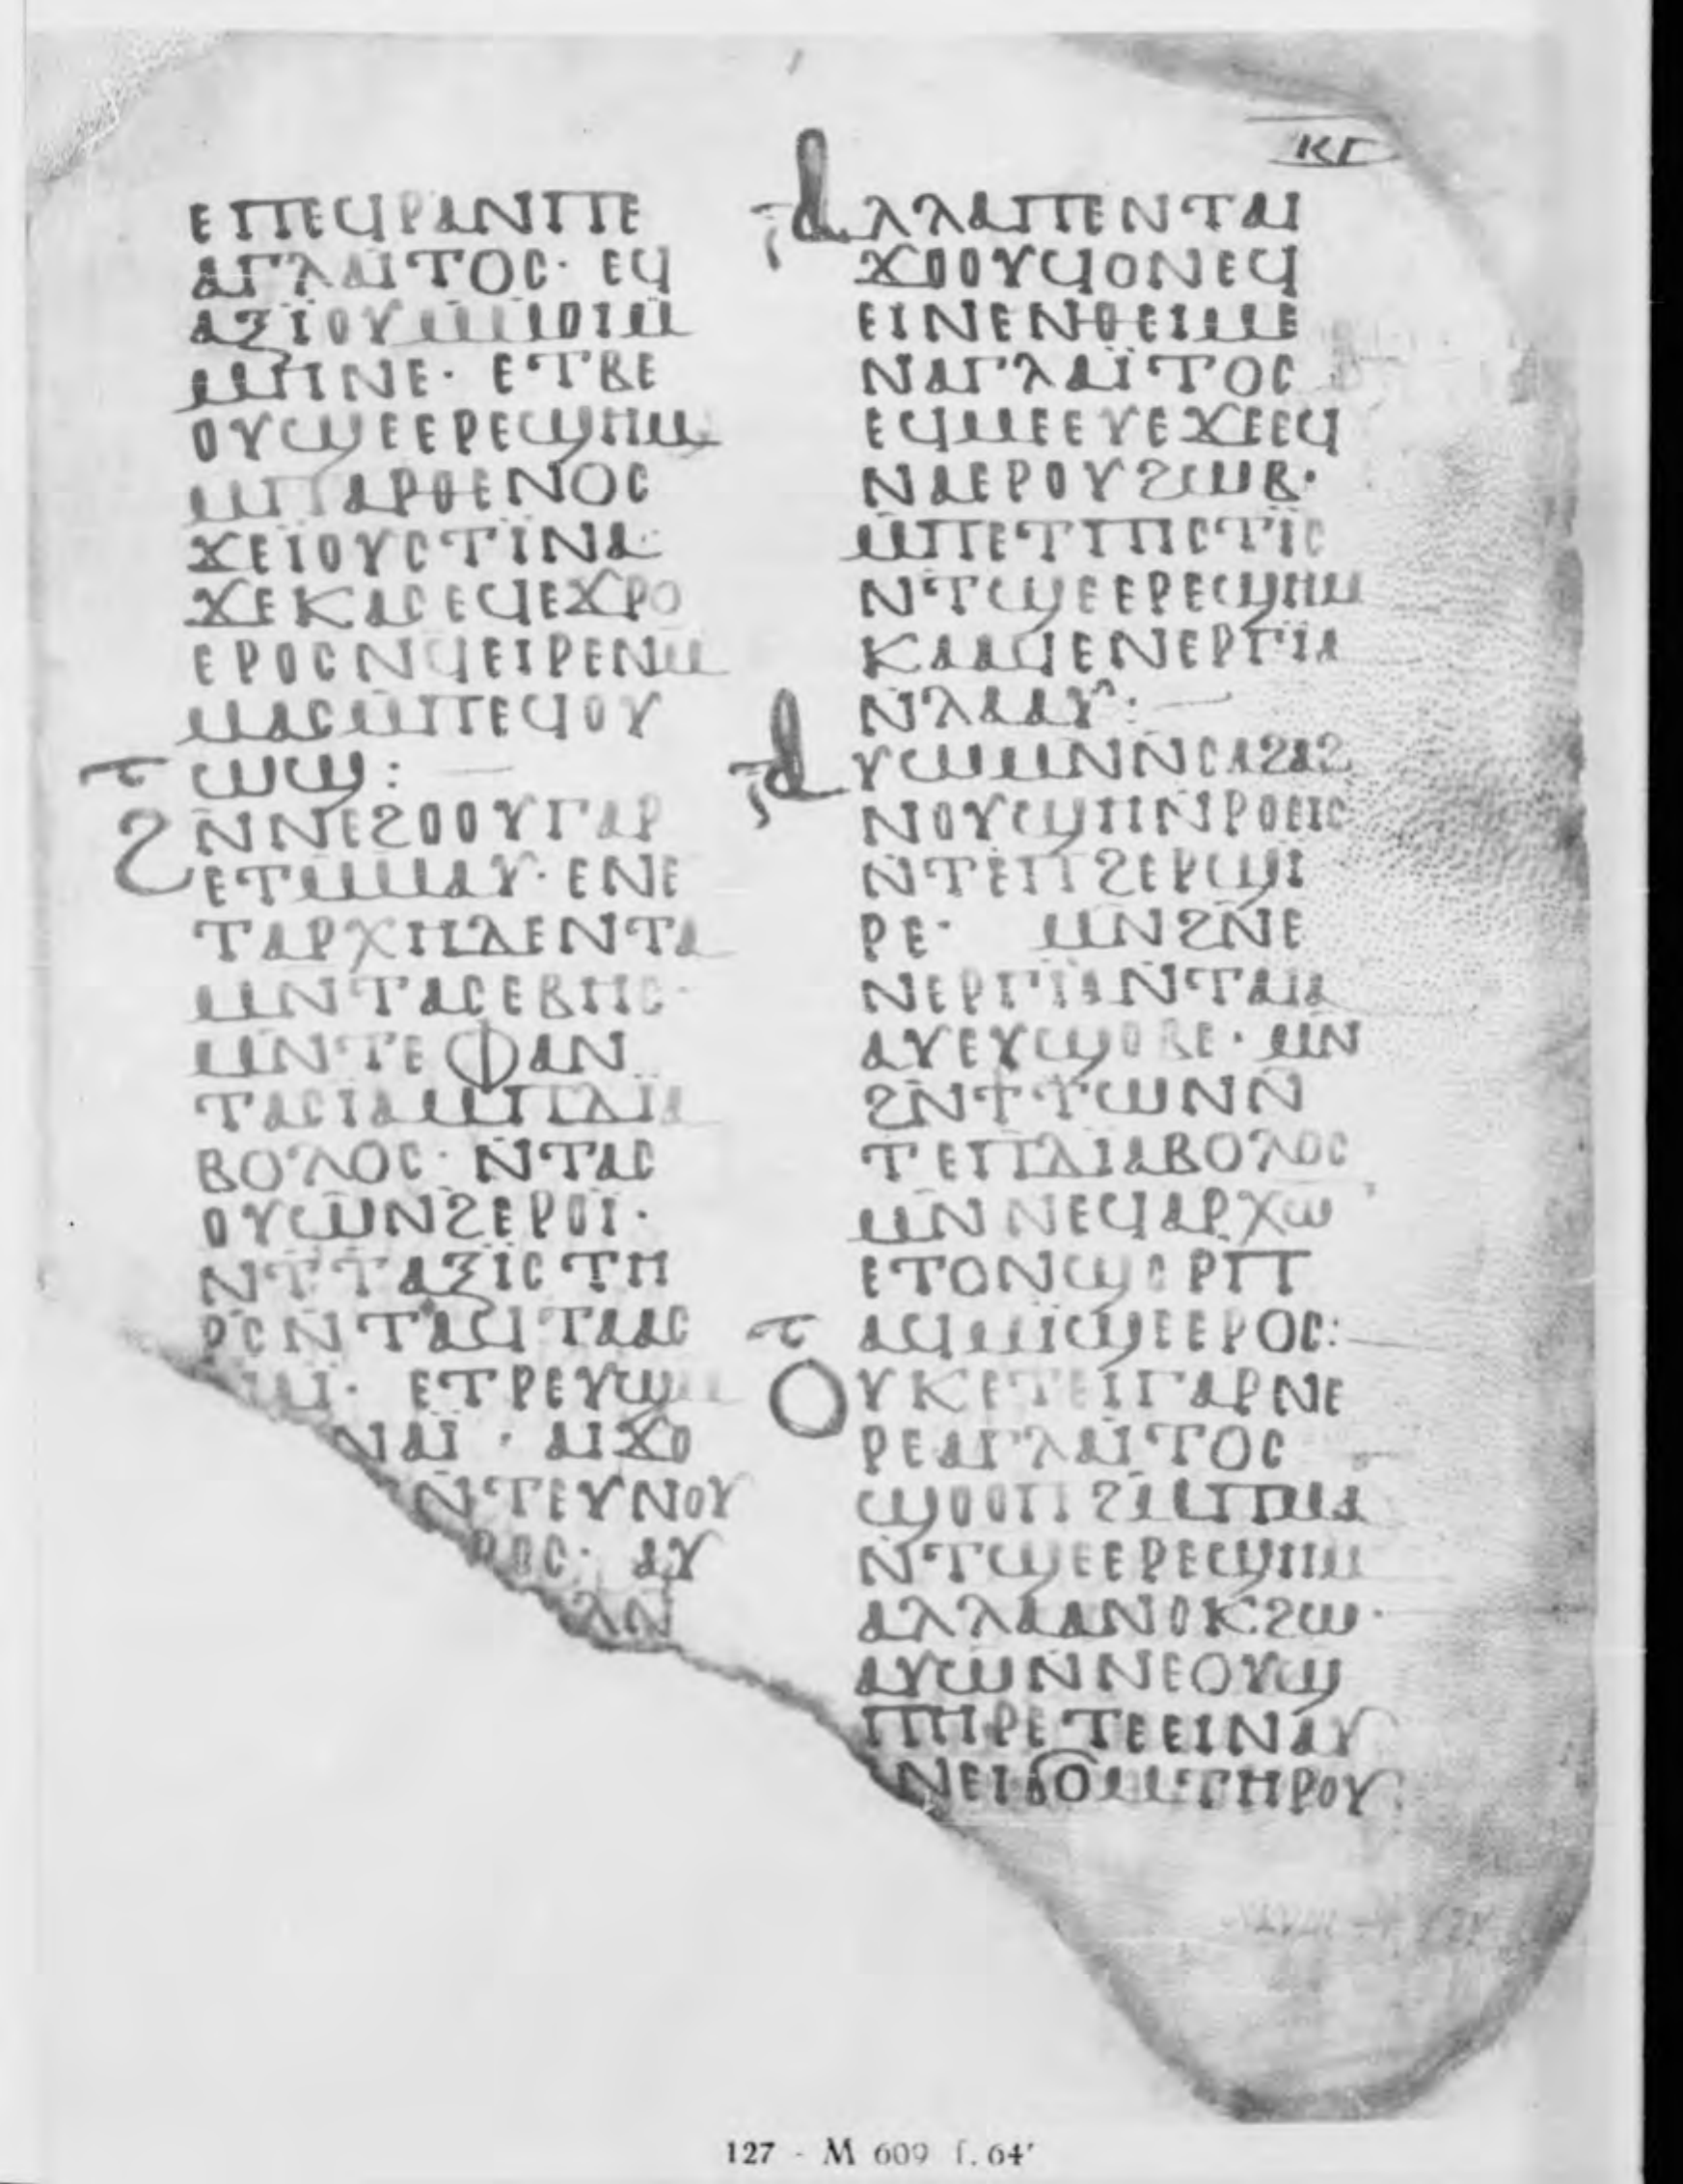 ⲕⲅ
ⲉⲡⲉϥⲣⲁⲛⲡⲉ
ⲁⲅⲗⲁⲓⲧⲟⲥ· ⲉϥ
ⲁⲝⲓ̈ⲟⲩⲙ̄ⲙⲟⲓⲙ̄
ⲙⲏⲛⲉ· ⲉⲧⲃⲉ
ⲟⲩϣⲉⲉⲣⲉϣⲏⲙ
ⲙ̄ⲡⲁⲣⲑⲉⲛⲟⲥ
ϫⲉⲓ̈ⲟⲩⲥⲧⲓ̈ⲛⲁ·
ϫⲉⲕⲁⲥⲉϥⲉϫⲣⲟ
ⲉⲣⲟⲥⲛϥⲉⲓⲣⲉⲛⲙ̄
ⲙⲁⲥⲙ̄ⲡⲉϥⲟⲩ
ⲱϣ:
ϩⲛ̄ⲛⲉϩⲟⲟⲩⲅⲁⲣ
ⲉⲧⲙ̄ⲙⲁⲩ· ⲉⲛⲉ
ⲧⲁⲣⲭⲏⲇⲉⲛⲧⲁ
ⲙⲛ̄ⲧⲁⲥⲉⲃⲏⲥ·
ⲙⲛ̄ⲧⲉⲫⲁⲛ
ⲧⲁⲥⲓⲁⲙ̄ⲡⲇⲓⲁ
ⲃⲟⲗⲟⲥ· ⲛ̄ⲧⲁⲥ
ⲟⲩⲱⲛϩⲉⲣⲟⲓ̈·
ⲛ̄ⲧⲧⲁⲝⲓ̈ⲥⲧⲏ
ⲣⲥ̄ⲛ̄ⲧⲁϥⲧⲁⲁⲥ
ⲉⲧⲣⲉⲩϣⲙ
ⲛⲁⲓ̈· ⲁⲓϫⲟ
ⲛ̄ⲧⲉⲩⲛⲟⲩ
ⲣⲟⲥ· ⲁⲩ
ⲗⲛ
ⲁⲗⲗⲁⲡⲉⲛⲧⲁⲓ
ϫⲟⲟⲩϥⲟⲛⲉϥ
ⲉⲓⲛⲉⲛⲑⲉⲓⲙⲉ
ⲛⲁⲅⲗⲁⲓ̈ⲧⲟⲥ
ⲉϥⲙⲉⲉⲩⲉϫⲉⲉϥ
ⲛⲁⲉⲣⲟⲩϩⲱⲃ·
ⲙ̄ⲡⲉⲧⲡⲓⲥⲧⲓ̈ⲥ
ⲛ̄ⲧϣⲉⲉⲣⲉϣⲏⲙ
ⲕⲁⲁϥⲉⲛⲉⲣⲅⲓ̈ⲁ
ⲛ̄ⲗⲁⲁⲩ:
ⲁⲩⲱⲙⲛ̄ⲛⲥⲁϩⲁϩ
ⲛⲟⲩϣⲏⲛ̄ⲣⲟⲉⲓⲥ
ⲛ̄ⲧⲉⲡϩⲉⲣϣⲓ
ⲣⲉ· ⲙⲛ̄ϩⲛⲉ
ⲛⲉⲣⲅⲓ̈ⲁⲛ̄ⲧⲁⲙ
ⲁⲩⲉⲩϣⲟⲃⲉ· ⲙⲛ̄
ϩⲛ̄ϯⲧⲱⲛⲛ̄
ⲧⲉⲡⲇⲓⲁⲃⲟⲗⲟⲥ
ⲙⲛ̄ⲛⲉϥⲁⲣⲭⲱ̄
ⲉⲧⲟⲛϣⲟⲣⲡ̄
ⲁϥⲙⲓ̈ϣⲉⲉⲣⲟⲥ:
ⲟⲩⲕⲉⲧⲉⲓⲅⲁⲣⲛⲉ
ⲣⲉⲁⲅⲗⲁⲓ̈ⲧⲟⲥ
ϣⲟⲟⲡϩⲓⲙ̄ⲡⲙⲁ
ⲛ̄ⲧϣⲉⲉⲣⲉϣⲏⲙ
ⲁⲗⲗⲁⲁⲛⲟⲕϩⲱ·
ⲁⲩⲱⲛ̄ⲛⲉⲟⲩϣ
ⲡⲏⲣⲉⲧⲉⲉⲓⲛⲁⲩ
ⲛⲉⲓϭⲟⲙⲧⲏⲣⲟⲩ:
127 - M 609 f. 64ʳ